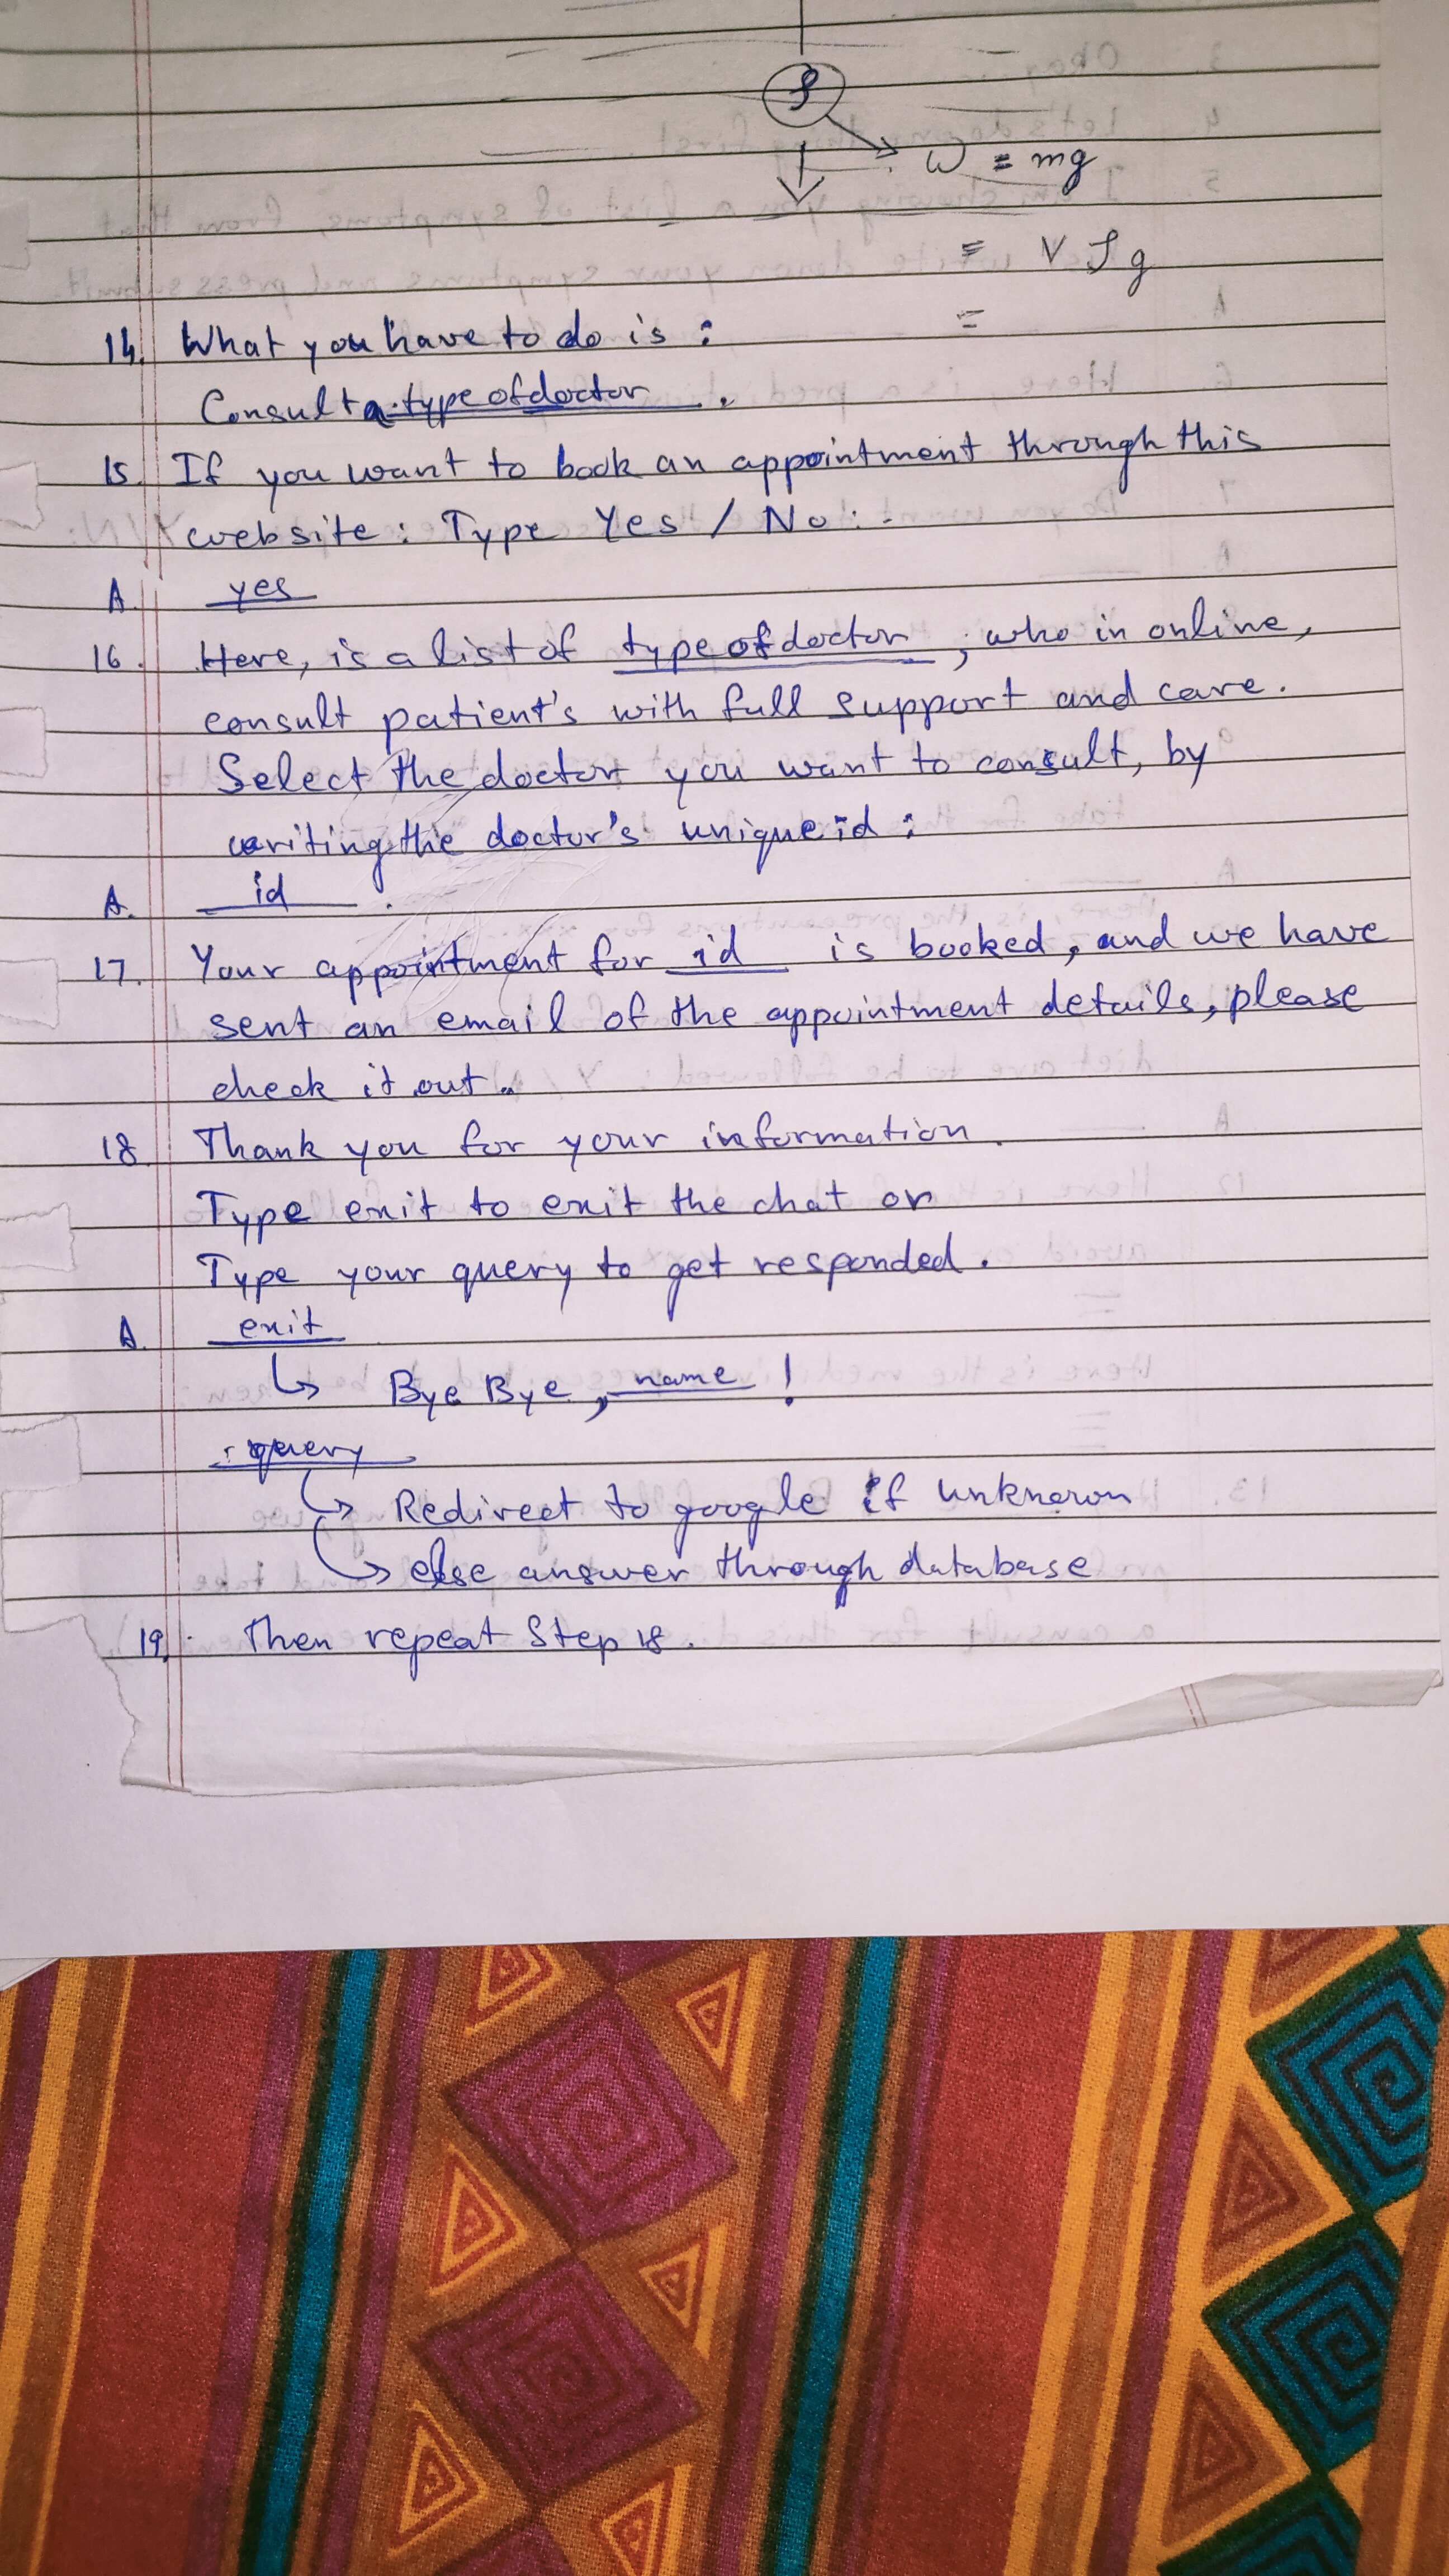 ρ
W = mg
= Vρg
=
14. What you have to do is :
Consult a typeofdoctor.
15. If you want to book an appointment through this
website : Type Yes / No : -
A. yes
16. Here, is a list of typeofdoctor, who in online,
consult patient's with full support and care.
Select the doctor you want to consult, by
writing the doctor's unique id :
A. id .
17. Your appointment for id is booked, and we have
sent an email of the appointment details, please
check it out.
18. Thank you for your information.
Type exit to exit the chat or
Type your query to get responded.
A. exit
↳ Bye Bye, name !
: query
↳ Redirect to google if unknown
↳ else answer through database
19. Then repeat Step 18.